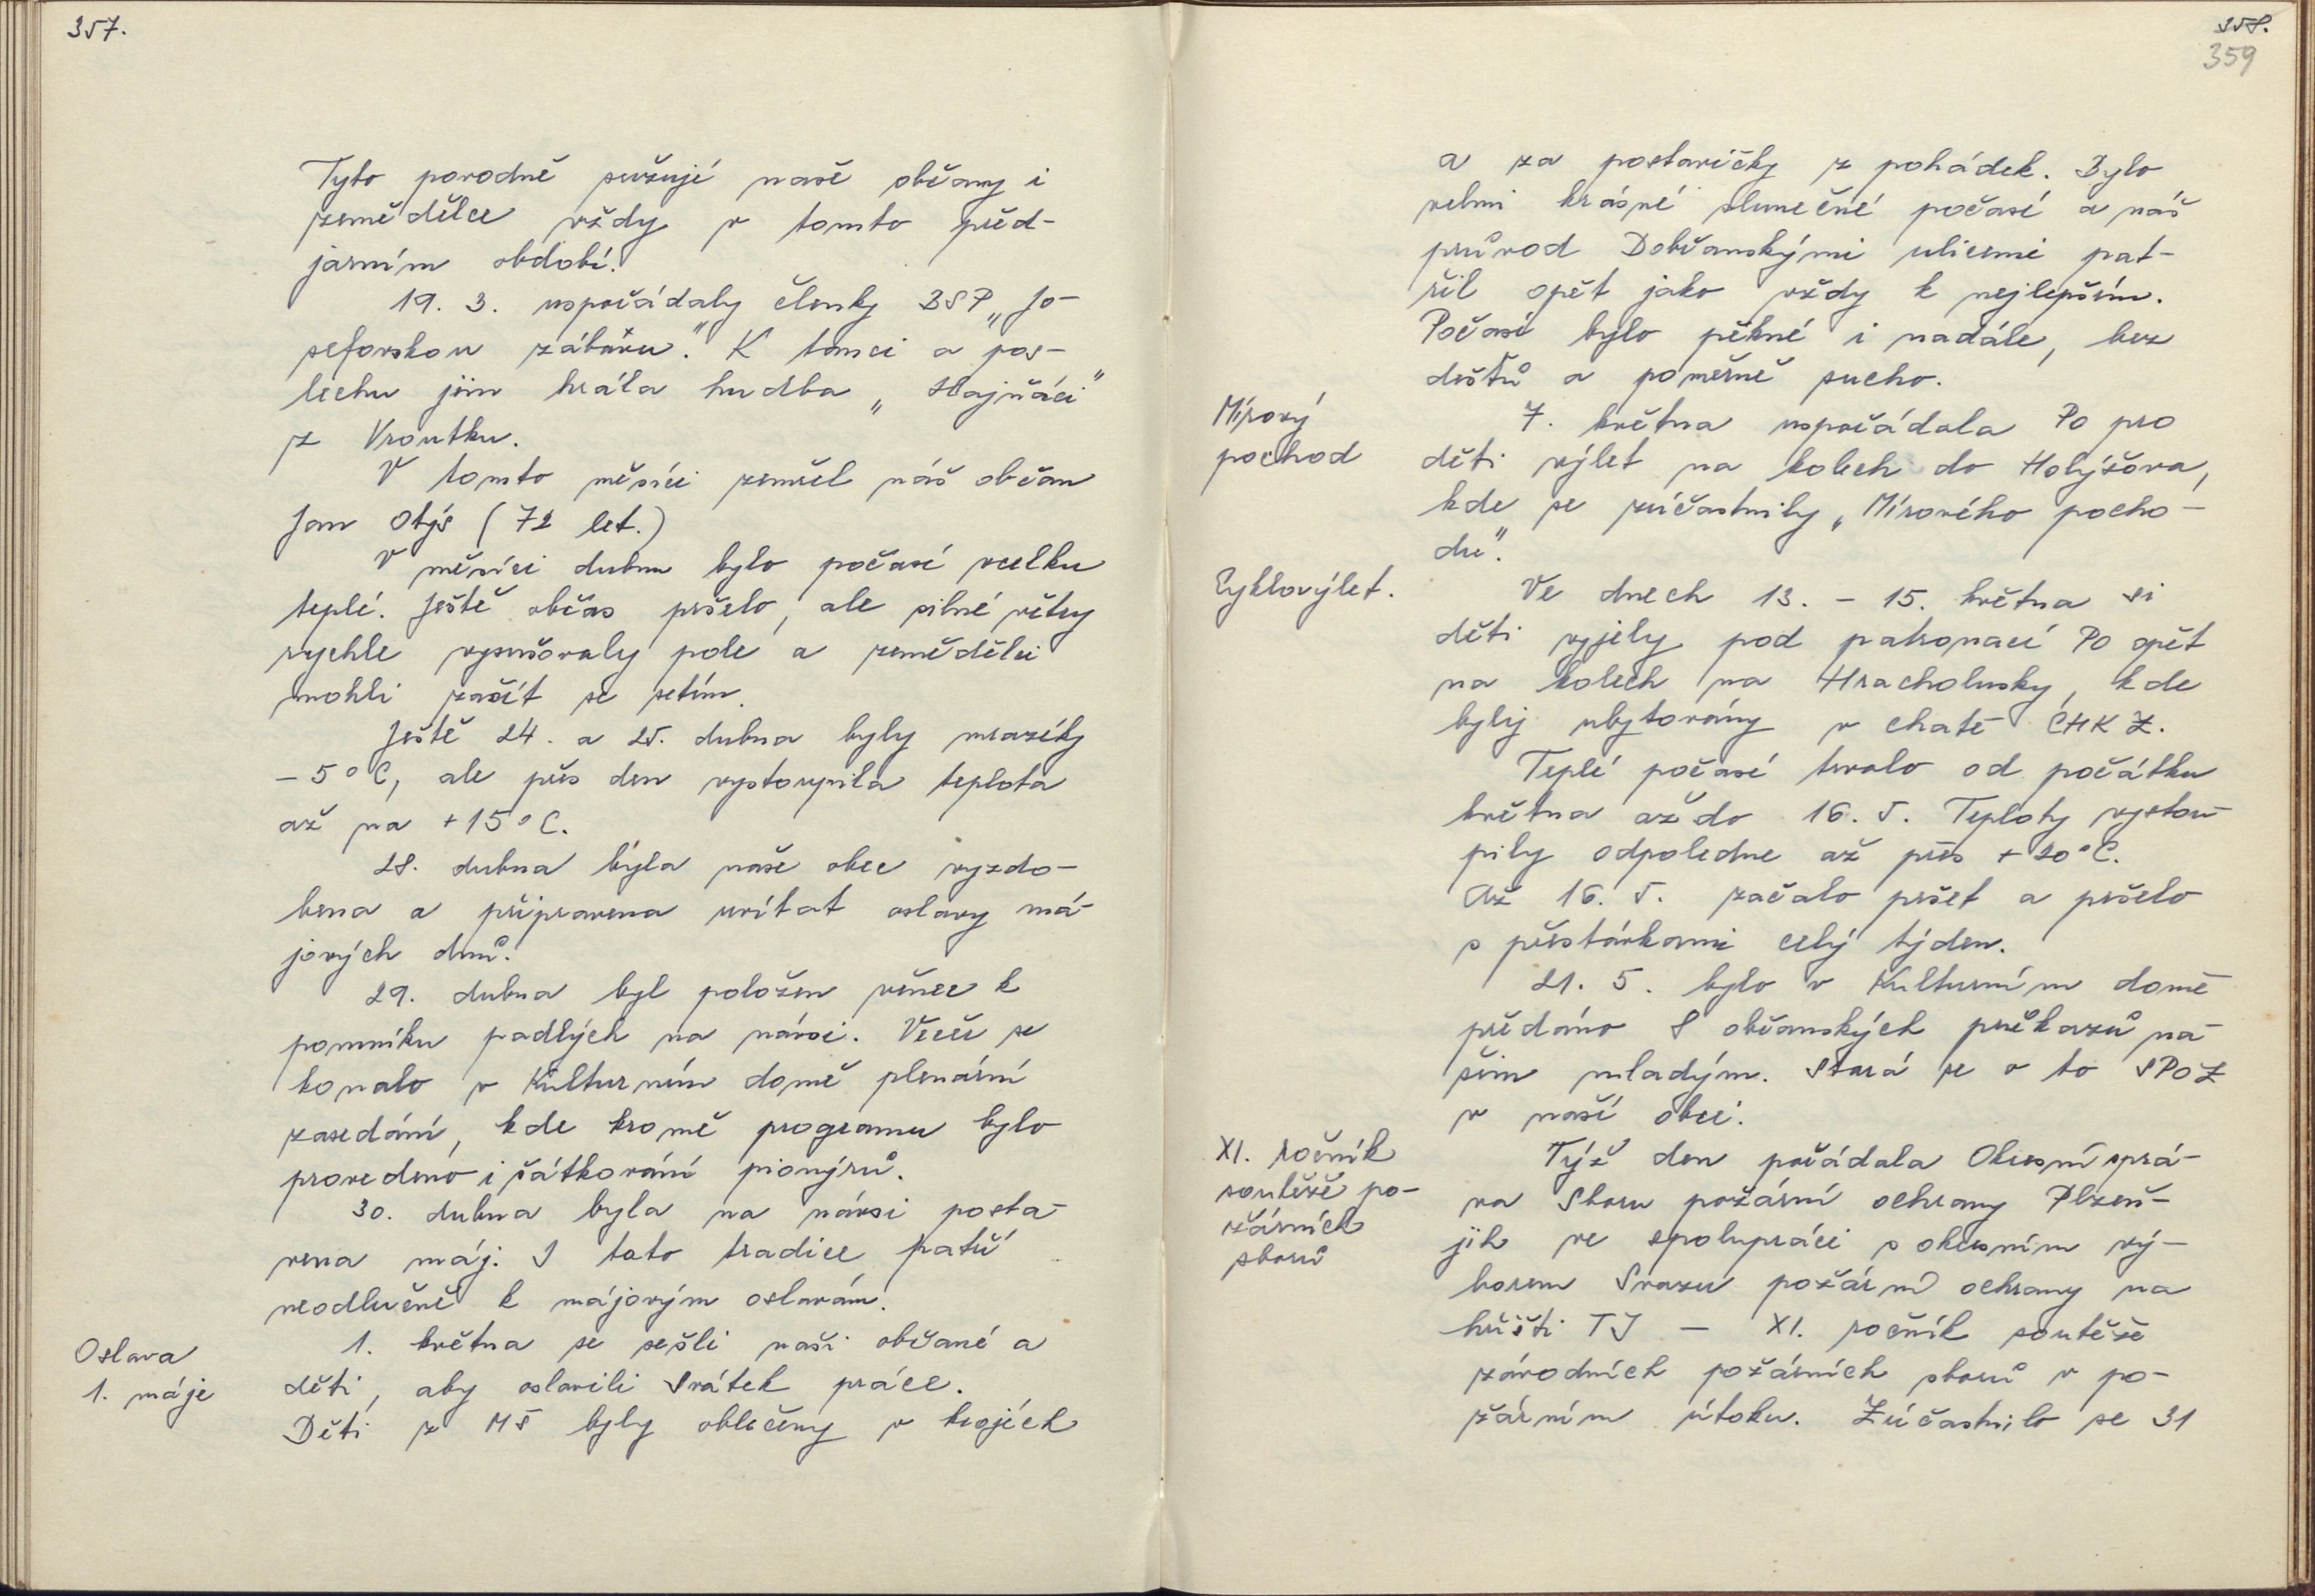 357.
Tyto povodně sužují naše občany i
zemědělce vždy v tomto před-
jarním období.
19. 3. uspořádaly členky BSP „Jo-
sefovskou zábavu." K tanci a pos-
lechu jim hrála hudba „Hajňáci"
z Vroutku.
V tomto měsíci zemřel náš občan
Jan Otýs (72 let.)
V měsíci dubnu bylo počasí vcelku
teplé. Ještě občas pršelo, ale silné větry
rychle vysušovaly pole a zemědělci
mohli začít se setím.
Ještě 24. a 25. dubna byly mrazíky
-5°C, ale přes den vystoupila teplota
až na +15°C.
28. dubna byla naše obec vyzdo-
bena a připravena uvítat oslavy má-
jových dnů.
29. dubna byl položen věnec k
pomníku padlých na návsi. Večer se
konalo v Kulturním domě plenární
zasedání, kde kromě programu bylo
provedeno i šátkování pionýrů.
30. dubna byla na návsi posta-
vena máj. I tato tradice patří
neodlučně k májovým oslavám.
Oslava
1. máje
1. května se sešli naši občané a
děti, aby oslavili Svátek práce.
Děti z MŠ byly oblečeny v krojích
358.
359
a za postavičky z pohádek. Bylo
velmi krásné slunečné počasí a náš
průvod Dobřanskými ulicemi pat-
řil opět jako vždy k nejlepším.
Počasí bylo pěkné i nadále, bez
dešťů a poměrně sucho.
Mírový
pochod
7. května uspořádala PO pro
děti výlet na kolech do Holýšova,
kde se zúčastnily „Mírového pocho-
du".
Cyklovýlet.
Ve dnech 13. - 15. května si
děti vyjely pod patronací PO opět
na kolech na Hracholusky, kde
byly ubytovány v chatě ČHKZ.
Teplé počasí trvalo od počátku
května až do 16. 5. Teploty vystou-
pily odpoledne až přes +20°C.
Až 16. 5. začalo pršet a pršelo
s přestávkami celý týden.
21. 5. bylo v Kulturním domě
předáno 8 občanských průkazů na-
šim mladým. Stará se o to SPOZ
v naší obci.
XI. ročník
soutěže po-
žárních
sborů
Týž den pořádala Okresní sprá-
va Sboru požární ochrany Plzeň-
jih ve spolupráci s okresním vý-
borem Svazu požární ochrany na
hřišti TJ - XI. ročník soutěže
závodních požárních sborů v po-
žárním útoku. Zúčastnilo se 31